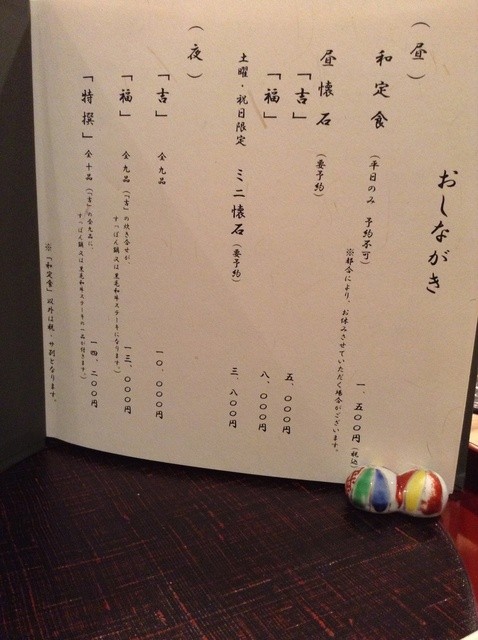 おしながき
(昼)
和定食 (平日のみ 予約不可) 一、五〇〇円(税込)
※都合により、お休みさせていただく場合がございます。
昼懐石 (要予約)
「吉」 五、〇〇〇円
「福」 八、〇〇〇円
土曜・祝日限定 ミニ懐石(要予約) 三、八〇〇円
(夜)
「吉」 全九品 一〇、〇〇〇円
「福」 全九品(「吉」の焼き合せが、 一三、〇〇〇円
すっぽん鍋又は黒毛和牛ステーキになります)
「特撰」 全十品(「吉」の全九品に、 一四、二〇〇円
すっぽん鍋又は黒毛和牛ステーキの一品が付きます。)
※「和定食」以外は税・サ別となります。